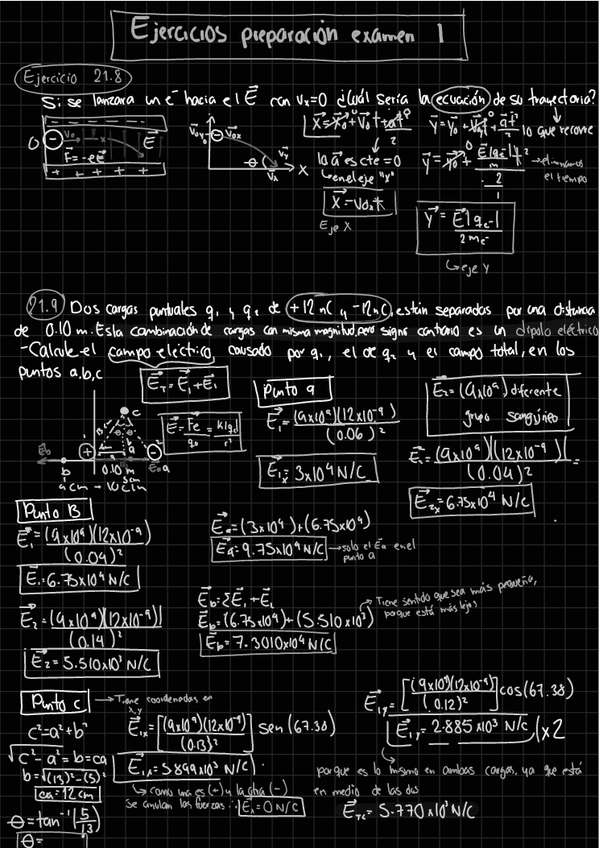 Ejercicios preparación examen 1
Ejercicio 21.8
Si se lanzara un e⁻ hacia el E⃗ con vx=0 ¿Cuál sería la ecuación de su trayectoria?
lo que recorre
F=-eE⃗
E⃗
la a⃗ es cte = 0
↳ en el eje "x"
→ eliminamos
el tiempo
X⃗ = V₀ₓt
Eje X
Y⃗ = E⃗|qe-|
2me-
↳ eje Y
21.9 Dos cargas puntuales q₁ y q₂ de +12nC y -12nC, están separadas por una distancia
de 0.10 m. Esta combinación de cargas con misma magnitud, pero signo contrario es un dipolo eléctrico
-Calcule el campo eléctrico causado por q₁, el de q₂ y el campo total, en los
puntos a,b,c
E⃗T = E⃗₁ + E⃗₁
E⃗ = Fe/q₀ = k|q|/r²
0.10 m
4cm - 10cm
Punto a
E⃗₁ = (9x10⁹)(12x10⁻⁹)
(0.06)²
E⃗₁ₓ = 3x10⁴ N/C
E₂ = (9x10⁹) diferente
grupo sanguíneo
E⃗₁ = (9x10⁹)(12x10⁻⁹)| =
(0.04)²
E⃗₂ₓ = 6.75x10⁴ N/C
E⃗a = (3x10⁴) + (6.75x10⁴)
E⃗a = 9.75x10⁴ N/C → solo el E⃗a en el
punto a
Punto B
E⃗₁ = (9x10⁹)(12x10⁻⁹)
(0.04)²
E⃗₁ = 6.75x10⁴ N/C
E⃗₂ = (9x10⁹)(12x10⁻⁹)|
(0.14)²
E⃗₂ = 5.510x10³ N/C
E⃗b = ΣE⃗₁ + E⃗₂
E⃗b = (6.75x10⁴) + (5.510x10³)
E⃗b = 7.3010x10⁴ N/C
Tiene sentido que sea más pequeño,
porque está más lejos
Punto c → Tiene coordenadas en
x,y
c² - a² + b²
√c² - a² = b = ca
b = √(13)² - (5)²
ca = 12 cm
θ = tan⁻¹(5/13)
θ =
E⃗₁ₓ = [(9x10⁹)(12x10⁻⁹)/(0.13)²] sen (67.38)
E⃗₁ₓ = 5.899x10³ N/C
↳ como una es (+) y la otra (-)
se anulan las fuerzas ∴ E⃗x = 0 N/C
E⃗₁y = [(9x10⁹)(12x10⁻⁹)/(0.12)²] cos(67.38)
E⃗₁y = 2.885x10³ N/C (x2
porque es lo mismo en ambas cargas, ya que está
en medio de las dos
E⃗Tc = 5.770x10³ N/C